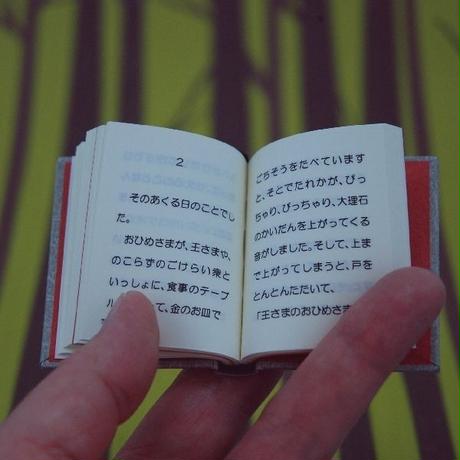 2
そのあくる日のことでし
た。
おひめさまが、王さまや、
のこらずのごけらい衆と
いっしょに、食事のテーブ
ル て、金のお皿で
ごちそうをたべています
と、そとでたれかが、ぴっ
ちゃり、ぴっちゃり、大理石
のかいだんを上がってくる
音がしました。そして、上ま
で上がってしまうと、戸を
とんとんたたいて、
「王さまのおひめさま